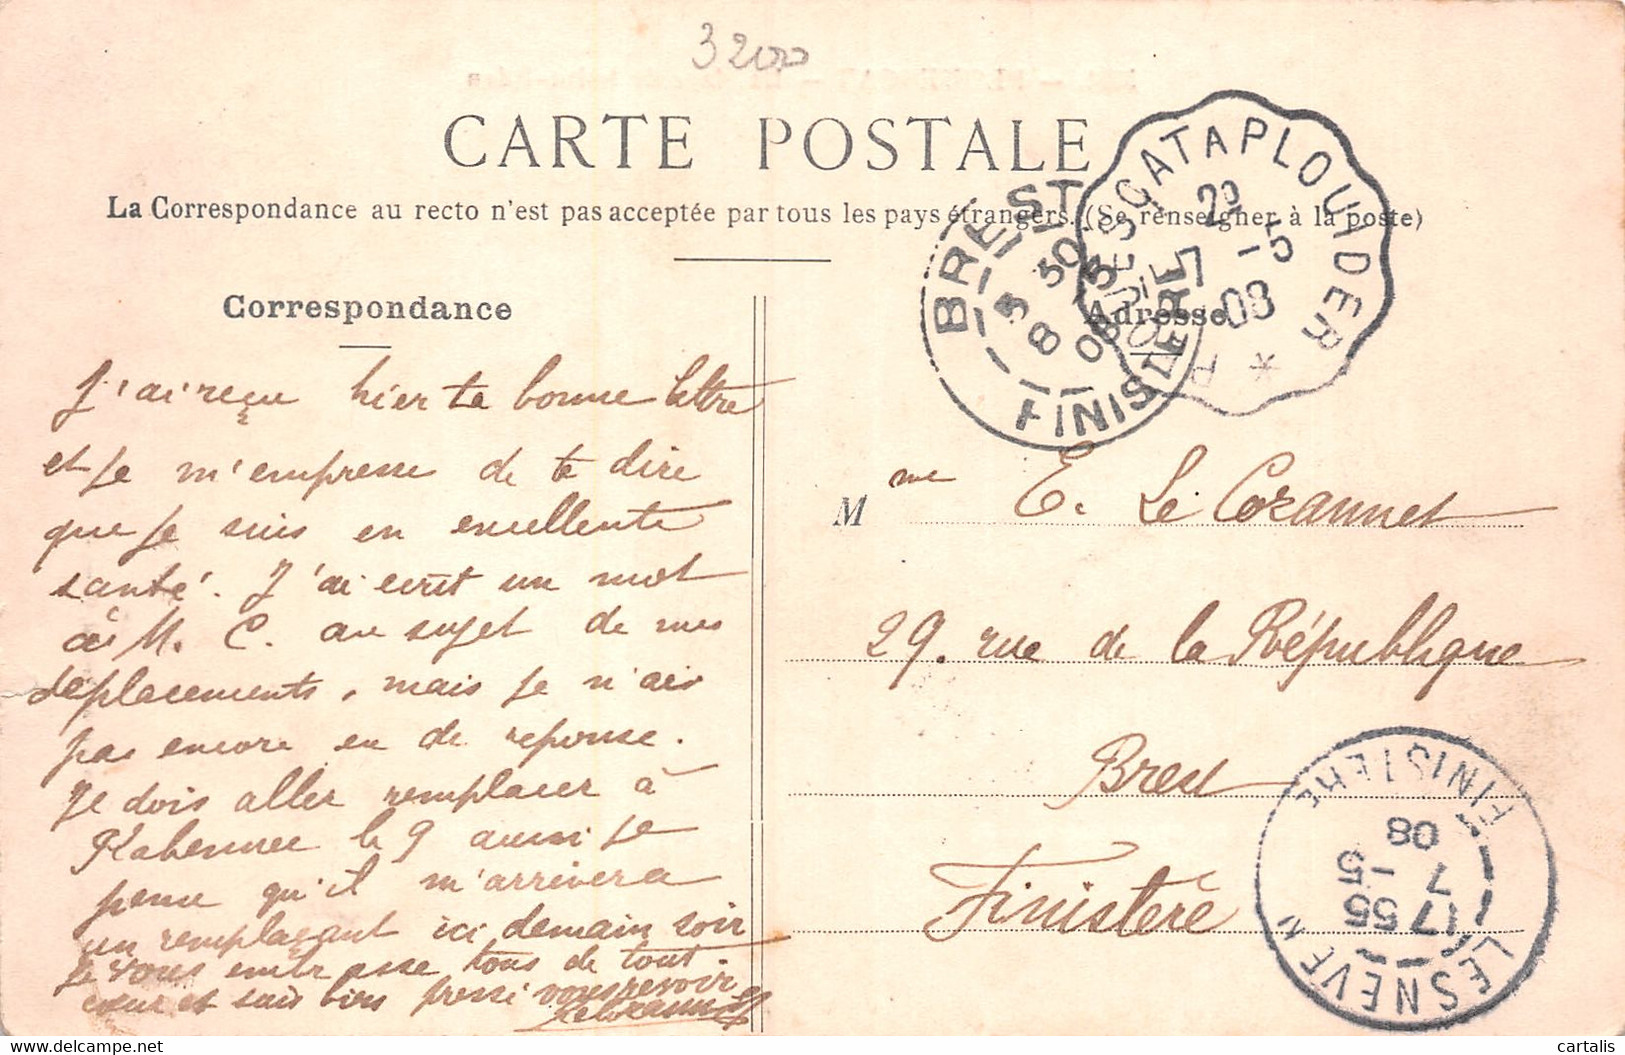 3200
CARTE POSTALE
La Correspondance au recto n'est pas acceptée par tous les pays étrangers. (Se renseigner à la poste)
Correspondance
J'ai reçu hier ta bonne lettre
et je m'empresse de te dire
que je suis en excellente
santé. J'ai écrit un mot
à M. C. au sujet de mes
déplacements, mais je n'ai
pas encore eu de réponse.
Je dois aller remplacer à
le 9 aussi je
pense qu'il m'arrivera
un remplaçant ici demain soir
Je vous embrasse tous de tout
cœur et suis bien pressé vous revoir
Le Corannet
Adresse
Mme E. Le Corannet
29. rue de la République
Brest
Finistère
BREST
3 50
8 5
08
FINISTERE
PLOUESCAT A PLOUIDER
29
7 - 5
08
LESNEVEN
17 55
7 - 5
08
FINISTERE
www.delcampe.net
cartalis